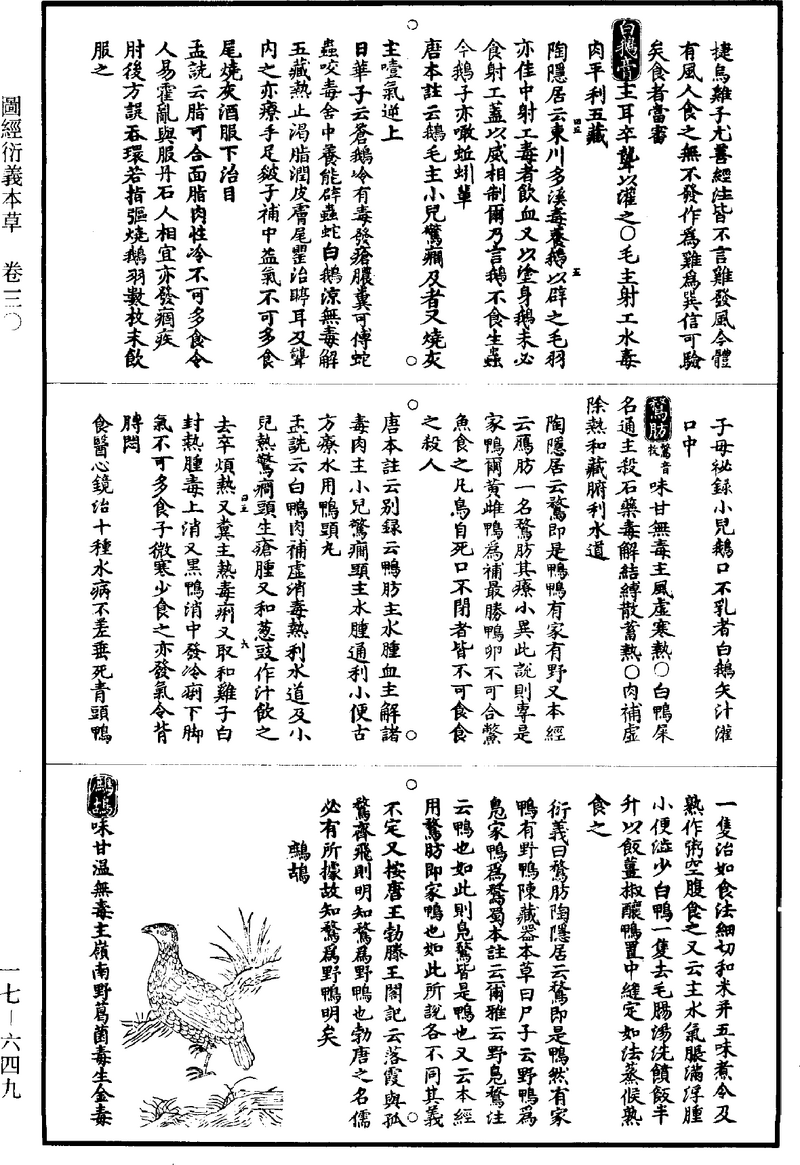 圖經衍義本草　卷三〇
一七—六四九
捷烏雞子尤善經注皆不言雞發風今體
有風人食之無不發作為雞為巽信可驗
矣食者當審
白鵝膏主耳卒聾以灌之〇毛主射工水毒
肉平利五藏
陶隱居云東川多溪毒養鵝以辟之毛羽
亦佳中射工毒者飲血又以塗身鵝未必
食射工蓋以威相制爾乃言鵝不食生蟲
今鵝子亦噉蚯蚓輩
唐本註云鵝毛主小兒驚癇及者又燒灰
主噎氣逆上
日華子云蒼鵝冷有毒發瘡膿糞可傅蛇
蟲咬毒舍中養能辟蟲蛇白鵝涼無毒解
五藏熱止渴脂潤皮膚尾罌治聤耳及聾
內之亦療手足皴子補中益氣不可多食
尾燒灰酒服下治目
孟詵云脂可合面脂肉性冷不可多食令
人易霍亂與服丹石人相宜亦發痼疾
肘後方誤吞環若指彄燒鵝羽數枚末飲
服之
子母祕錄小兒鵝口不乳者白鵝矢汁灌
口中
鶩肪鶩音牧味甘無毒主風虛寒熱〇白鴨屎
名通主殺石藥毒解結縛散蓄熱〇肉補虛
除熱和藏腑利水道
陶隱居云鶩即是鴨鴨有家有野又本經
云鴈肪一名鶩肪其療小異此說則專是
家鴨爾黃雌鴨為補最勝鴨卵不可合鱉
魚食之凡鳥自死口不閉者皆不可食食
之殺人
唐本註云別錄云鴨肪主水腫血主解諸
毒肉主小兒驚癇頭主水腫通利小便古
方療水用鴨頭丸
孟詵云白鴨肉補虛消毒熱利水道及小
兒熱驚癇頭生瘡腫又和葱豉作汁飲之
去卒煩熱又糞主熱毒痢又取和雞子白
封熱腫毒上消又黑鴨消中發冷痢下脚
氣不可多食子微寒少食之亦發氣令背
膊悶
食醫心鏡治十種水病不差垂死青頭鴨
一隻治如食法細切和米并五味煮令及
熟作粥空腹食之又云主水氣脹滿浮腫
小便澁少白鴨一隻去毛腸湯洗饙飯半
升以飯薑椒釀鴨置中縫定如法蒸候熟
食之
衍義曰鶩肪陶隱居云鶩即是鴨然有家
鴨有野鴨陳藏器本草曰尸子云野鴨為
鳧家鴨為鶩蜀本註云爾雅云野鳧鶩注
云鴨也如此則鳧鶩皆是鴨也又云本經
用鶩肪即家鴨也如此所說各不同其義
不定又按唐王勃滕王閣記云落霞與孤
鶩齊飛則明知鶩為野鴨也勃唐之名儒
必有所據故知鶩為野鴨明矣
鷓鴣
鷓鴣味甘溫無毒主嶺南野葛菌毒生金毒